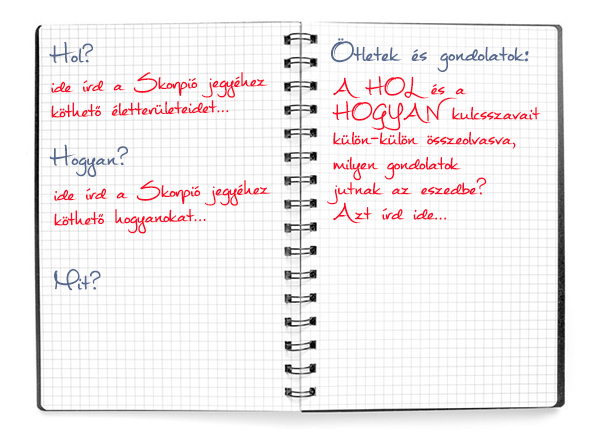 Hol?
ide írd a Skorpió jegyéhez
köthető életterületeidet...
Hogyan?
ide írd a Skorpió jegyéhez
köthető hogyanokat...
Mit?
Ötletek és gondolatok:
A HOL és a
HOGYAN kulcsszavait
külön-külön összeolvasva,
milyen gondolatok
jutnak az eszedbe?
Azt írd ide...